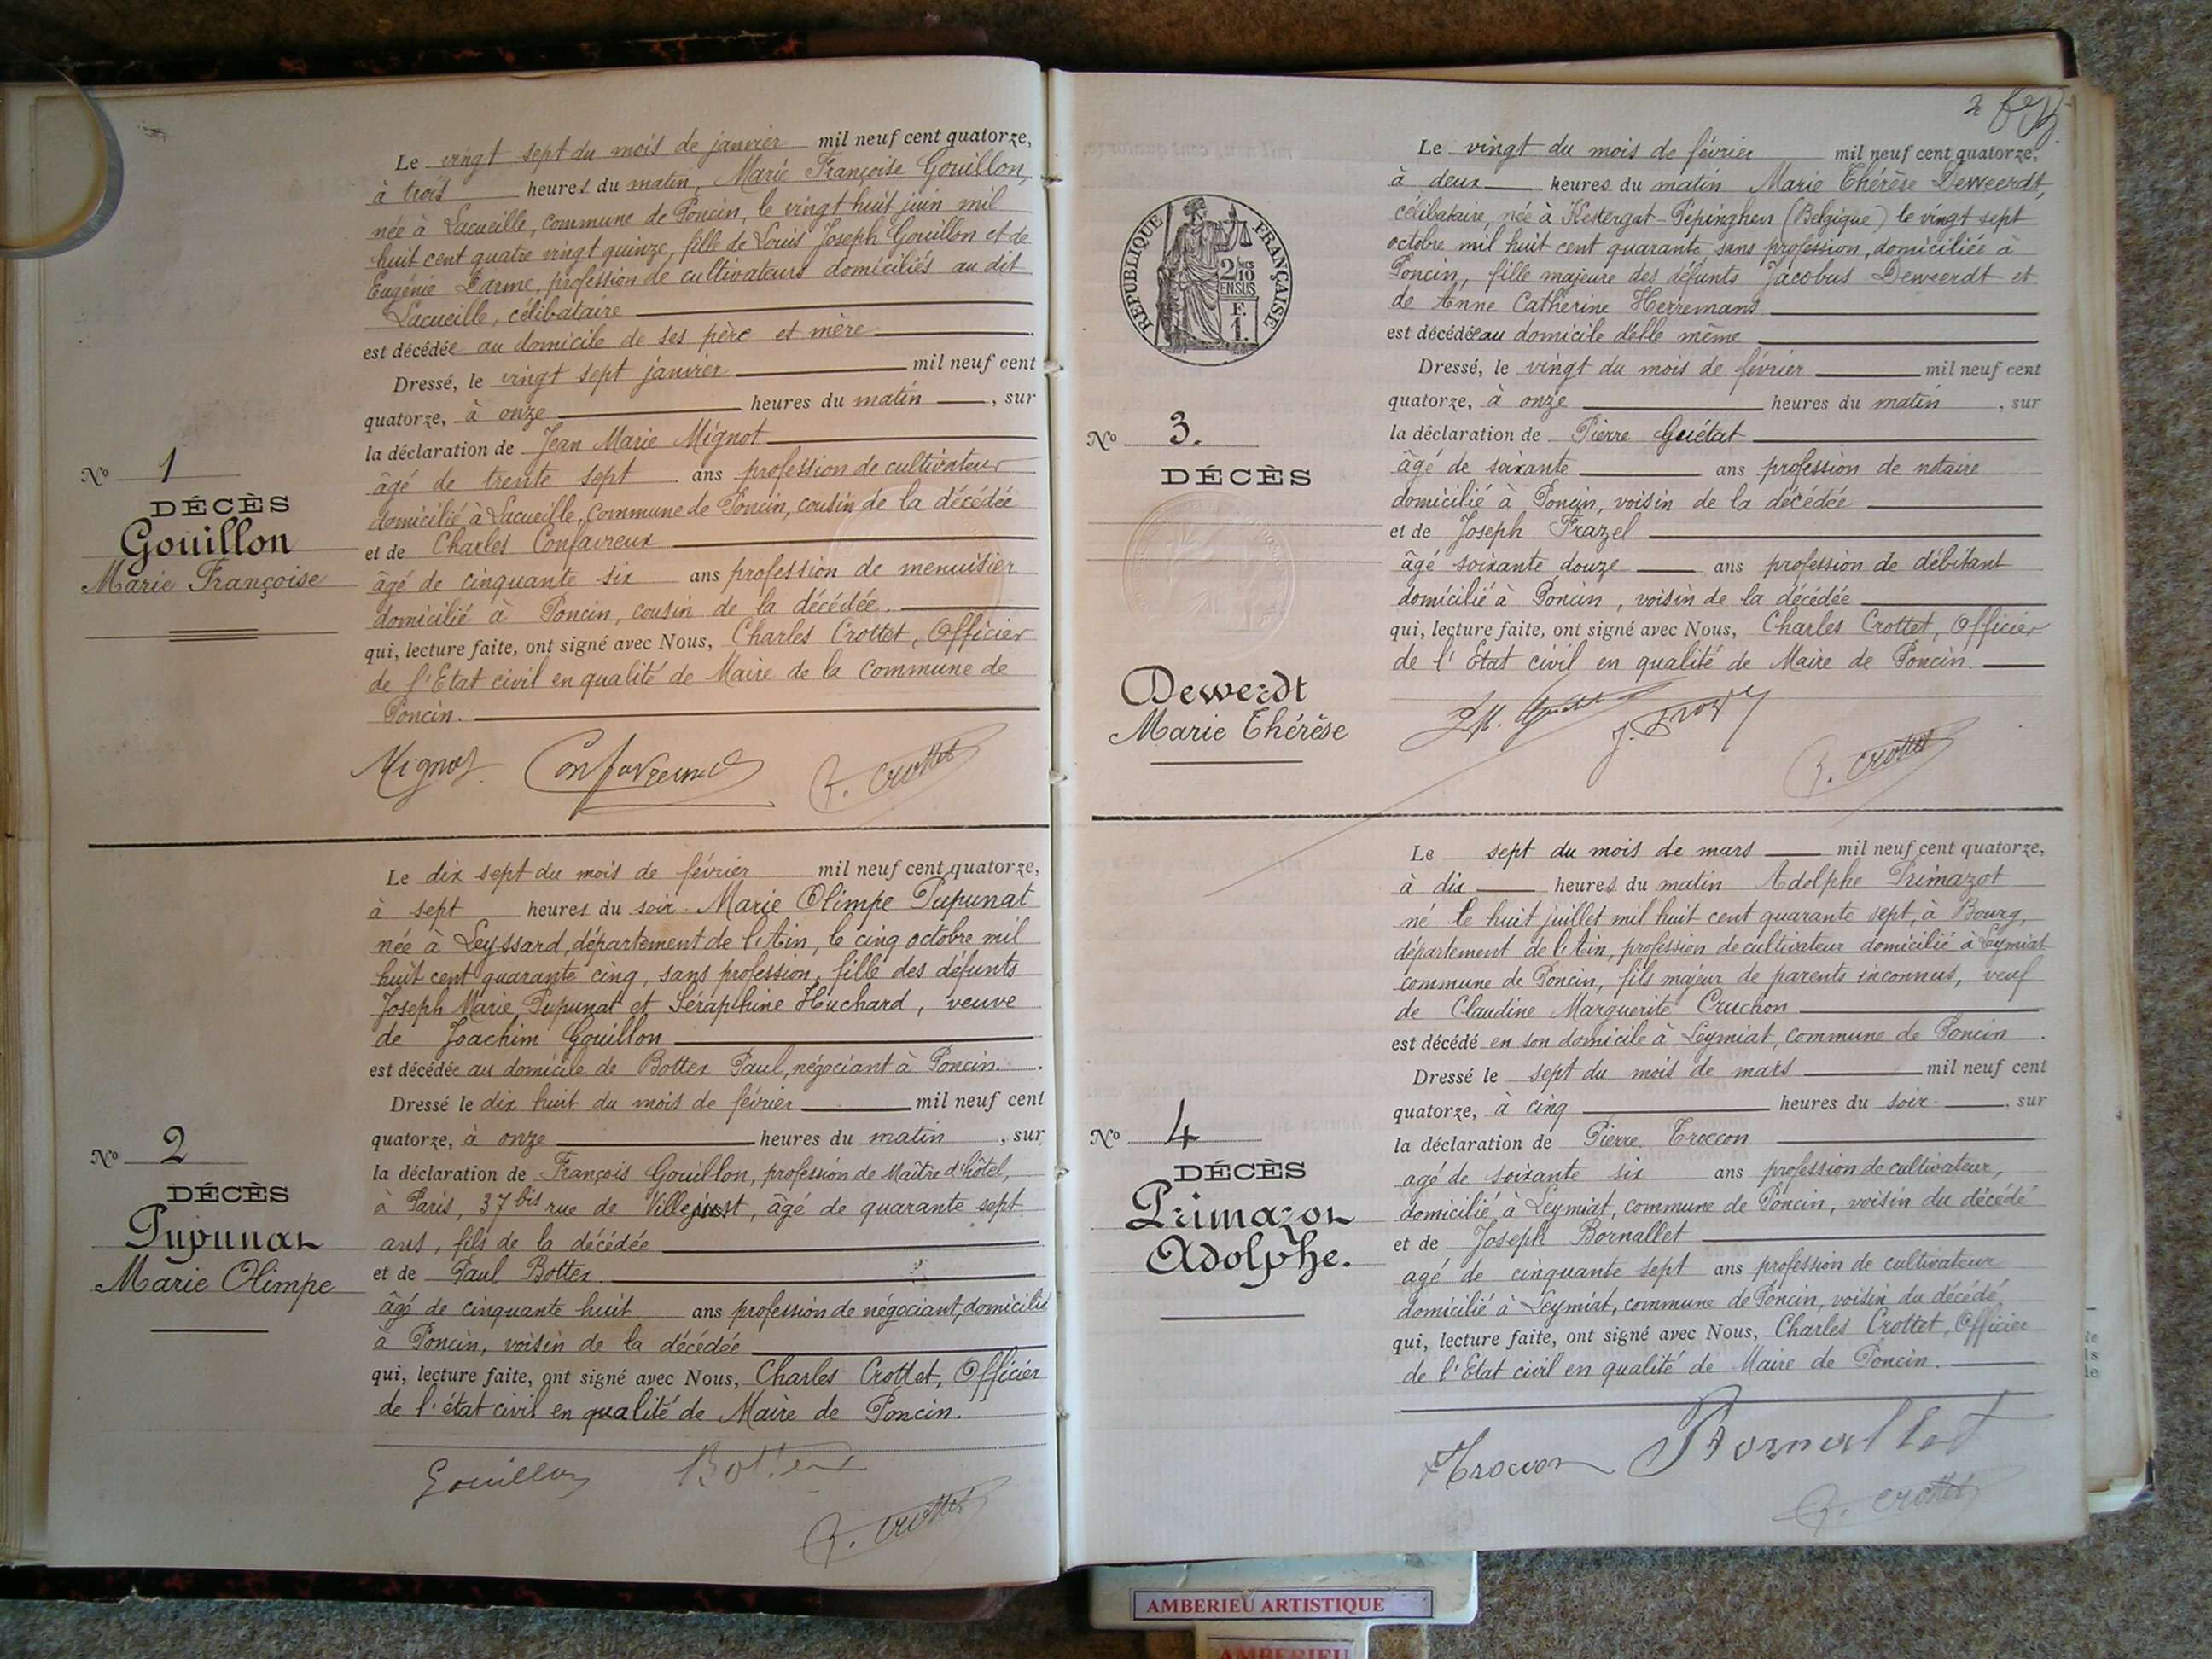 Le vingt sept du mois de janvier mil neuf cent quatorze,
à trois heures du matin, Marie Françoise Gouillon,
née à Lacueille, commune de Poncin, le vingt huit juin mil
huit cent quatre vingt quinze, fille de Louis Joseph Gouillon et de
Eugénie Darme, profession de cultivateurs domiciliés au dit
Lacueille, célibataire
est décédée au domicile de ses père et mère
Dressé, le vingt sept janvier mil neuf cent
quatorze, à onze heures du matin, sur
la déclaration de Jean Marie Mignot
âgé de trente sept ans profession de cultivateur
domicilié à Lacueille, Commune de Poncin, cousin de la décédée
et de Charles Confavreux
âgé de cinquante six ans profession de menuisier
domicilié à Poncin, cousin de la décédée.
qui, lecture faite, ont signé avec Nous, Charles Crottet, Officier
de l'Etat civil en qualité de Maire de la Commune de
Poncin.
Nº 1
DÉCÈS
Gouillon
Marie Françoise
Mignot Confavreux C. Crottet
Le dix sept du mois de février mil neuf cent quatorze,
à sept heures du soir Marie Olimpe Pupunat
née à Leyssard, département de l'Ain, le cinq octobre mil
huit cent quarante cinq, sans profession, fille des défunts
Joseph Marie Pupunat et Séraphine Huchard, veuve
de Joachim Gouillon
est décédée au domicile de Botter Paul, négociant à Poncin.
Dressé le dix huit du mois de février mil neuf cent
quatorze, à onze heures du matin, sur
la déclaration de François Gouillon, profession de Maître d'hôtel,
à Paris, 37 bis rue de Villejust, âgé de quarante sept
ans, fils de la décédée
et de Paul Botter
âgé de cinquante huit ans profession de négociant, domicilié
à Poncin, voisin de la décédée
qui, lecture faite, ont signé avec Nous, Charles Crottet, Officier
de l'état civil en qualité de Maire de Poncin.
Nº 2
DÉCÈS
Pupunat
Marie Olimpe
Gouillon Botter
C. Crottet
2
Le vingt du mois de février mil neuf cent quatorze,
à deux heures du matin Marie Thérèse Deweerdt,
célibataire, née à Kestergat-Pepinghen (Belgique) le vingt sept
octobre mil huit cent quarante, sans profession, domiciliée à
Poncin, fille majeure des défunts Jacobus Deweerdt et
de Anne Catherine Herremans
est décédée au domicile d'elle même
Dressé, le vingt du mois de février mil neuf cent
quatorze, à onze heures du matin, sur
la déclaration de Pierre Guétat
âgé de soixante ans profession de notaire
domicilié à Poncin, voisin de la décédée
et de Joseph Frazel
âgé soixante douze ans profession de débitant
domicilié à Poncin, voisin de la décédée
qui, lecture faite, ont signé avec Nous, Charles Crottet, Officier
de l'Etat civil en qualité de Maire de Poncin.
REPUBLIQUE FRANÇAISE
2/10
EN SUS
F.
1.
Nº 3.
DÉCÈS
Dewerdt
Marie Thérèse
C. Crottet
Le sept du mois de mars mil neuf cent quatorze,
à dix heures du matin Adolphe Primazot
né le huit juillet mil huit cent quarante sept, à Bourg,
département de l'Ain, profession de cultivateur domicilié à Leymiat
commune de Poncin, fils majeur de parents inconnus, veuf
de Claudine Marguerite Cruchon
est décédé en son domicile à Leymiat, commune de Poncin.
Dressé le sept du mois de mars mil neuf cent
quatorze, à cinq heures du soir, sur
la déclaration de Pierre Troccon
agé de soixante six ans profession de cultivateur,
domicilié à Leymiat, commune de Poncin, voisin du décédé
et de Joseph Bornallet
agé de cinquante sept ans profession de cultivateur
domicilié à Leymiat, commune de Poncin, voisin du décédé
qui, lecture faite, ont signé avec Nous, Charles Crottet, Officier
de l'Etat civil en qualité de Maire de Poncin.
Nº 4
DÉCÈS
Primazot
Adolphe.
Troccon Bornallet
C. Crottet
AMBERIEU ARTISTIQUE
AMBERIEU